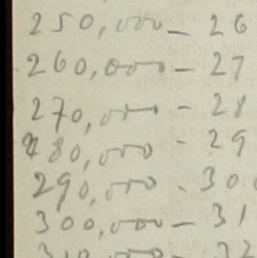 250,000 – 26
260,000 – 27
270,000 – 28
280,000 - 29
290,000 - 30
300,000 – 31
310,000 – 32